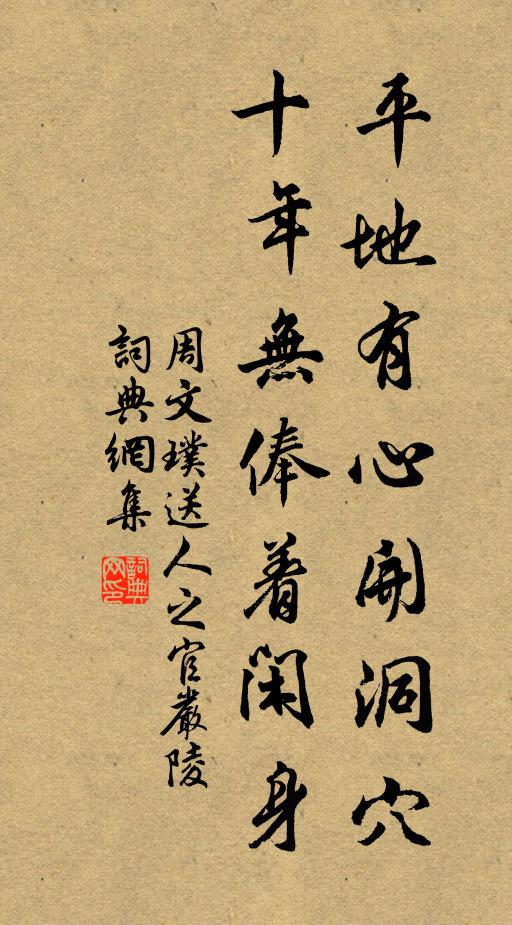 平地有心開洞穴
十年無俸着閑身
周文璞送人之官嚴陵
詞典網集
詞典網印